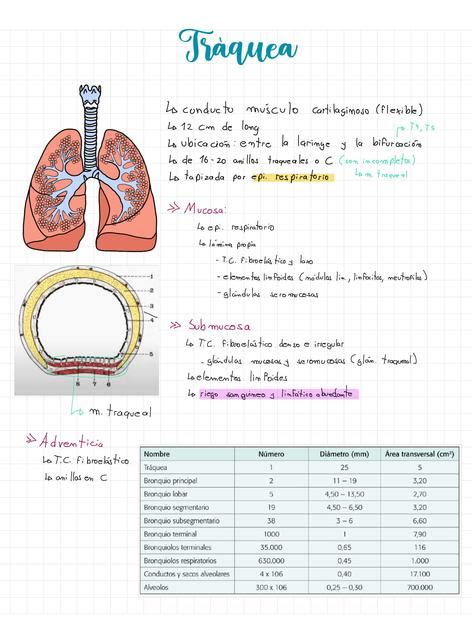 Tràquea
↳ conducto músculo cartilaginoso (flexible)
↳ 12 cm de long
↳ ubicación: entre la laringe y la bifurcación
↳ de 16-20 anillos traqueales o C (son incompletos)
↳ m. traqueal
↳ tapizada por epi. respiratorio
>> Mucosa:
↳ epi. respiratorio
↳ lámina propia
- T.C. fibroelástico y laxo
- elementos linfoides (nódulos lin, linfocitos, neutrofilos)
- glándulas seromucosas
1
2
3
4
5
6 7 8
↳ m. traqueal
>> Submucosa
↳ T.C. fibroelástico denso e irregular
- glándulas mucosas y seromucosas (glán. traqueal)
↳ elementos linfoides
↳ riego sanguíneo y linfático abundante
>> Adventicia
↳ T.C. fibroelástico
↳ anillos en C
Nombre Número Diámetro (mm) Área transversal (cm²)
Tráquea 1 25 5
Bronquio principal 2 11 – 19 3,20
Bronquio lobar 5 4,50 – 13,50 2,70
Bronquio segmentario 19 4,50 – 6,50 3,20
Bronquio subsegmentario 38 3 – 6 6,60
Bronquio terminal 1000 1 7,90
Bronquiolos terminales 35.000 0,65 116
Bronquiolos respiratorios 630.000 0,45 1.000
Conductos y sacos alveolares 4 x 106 0,40 17.100
Alveolos 300 x 106 0,25 – 0,30 700.000